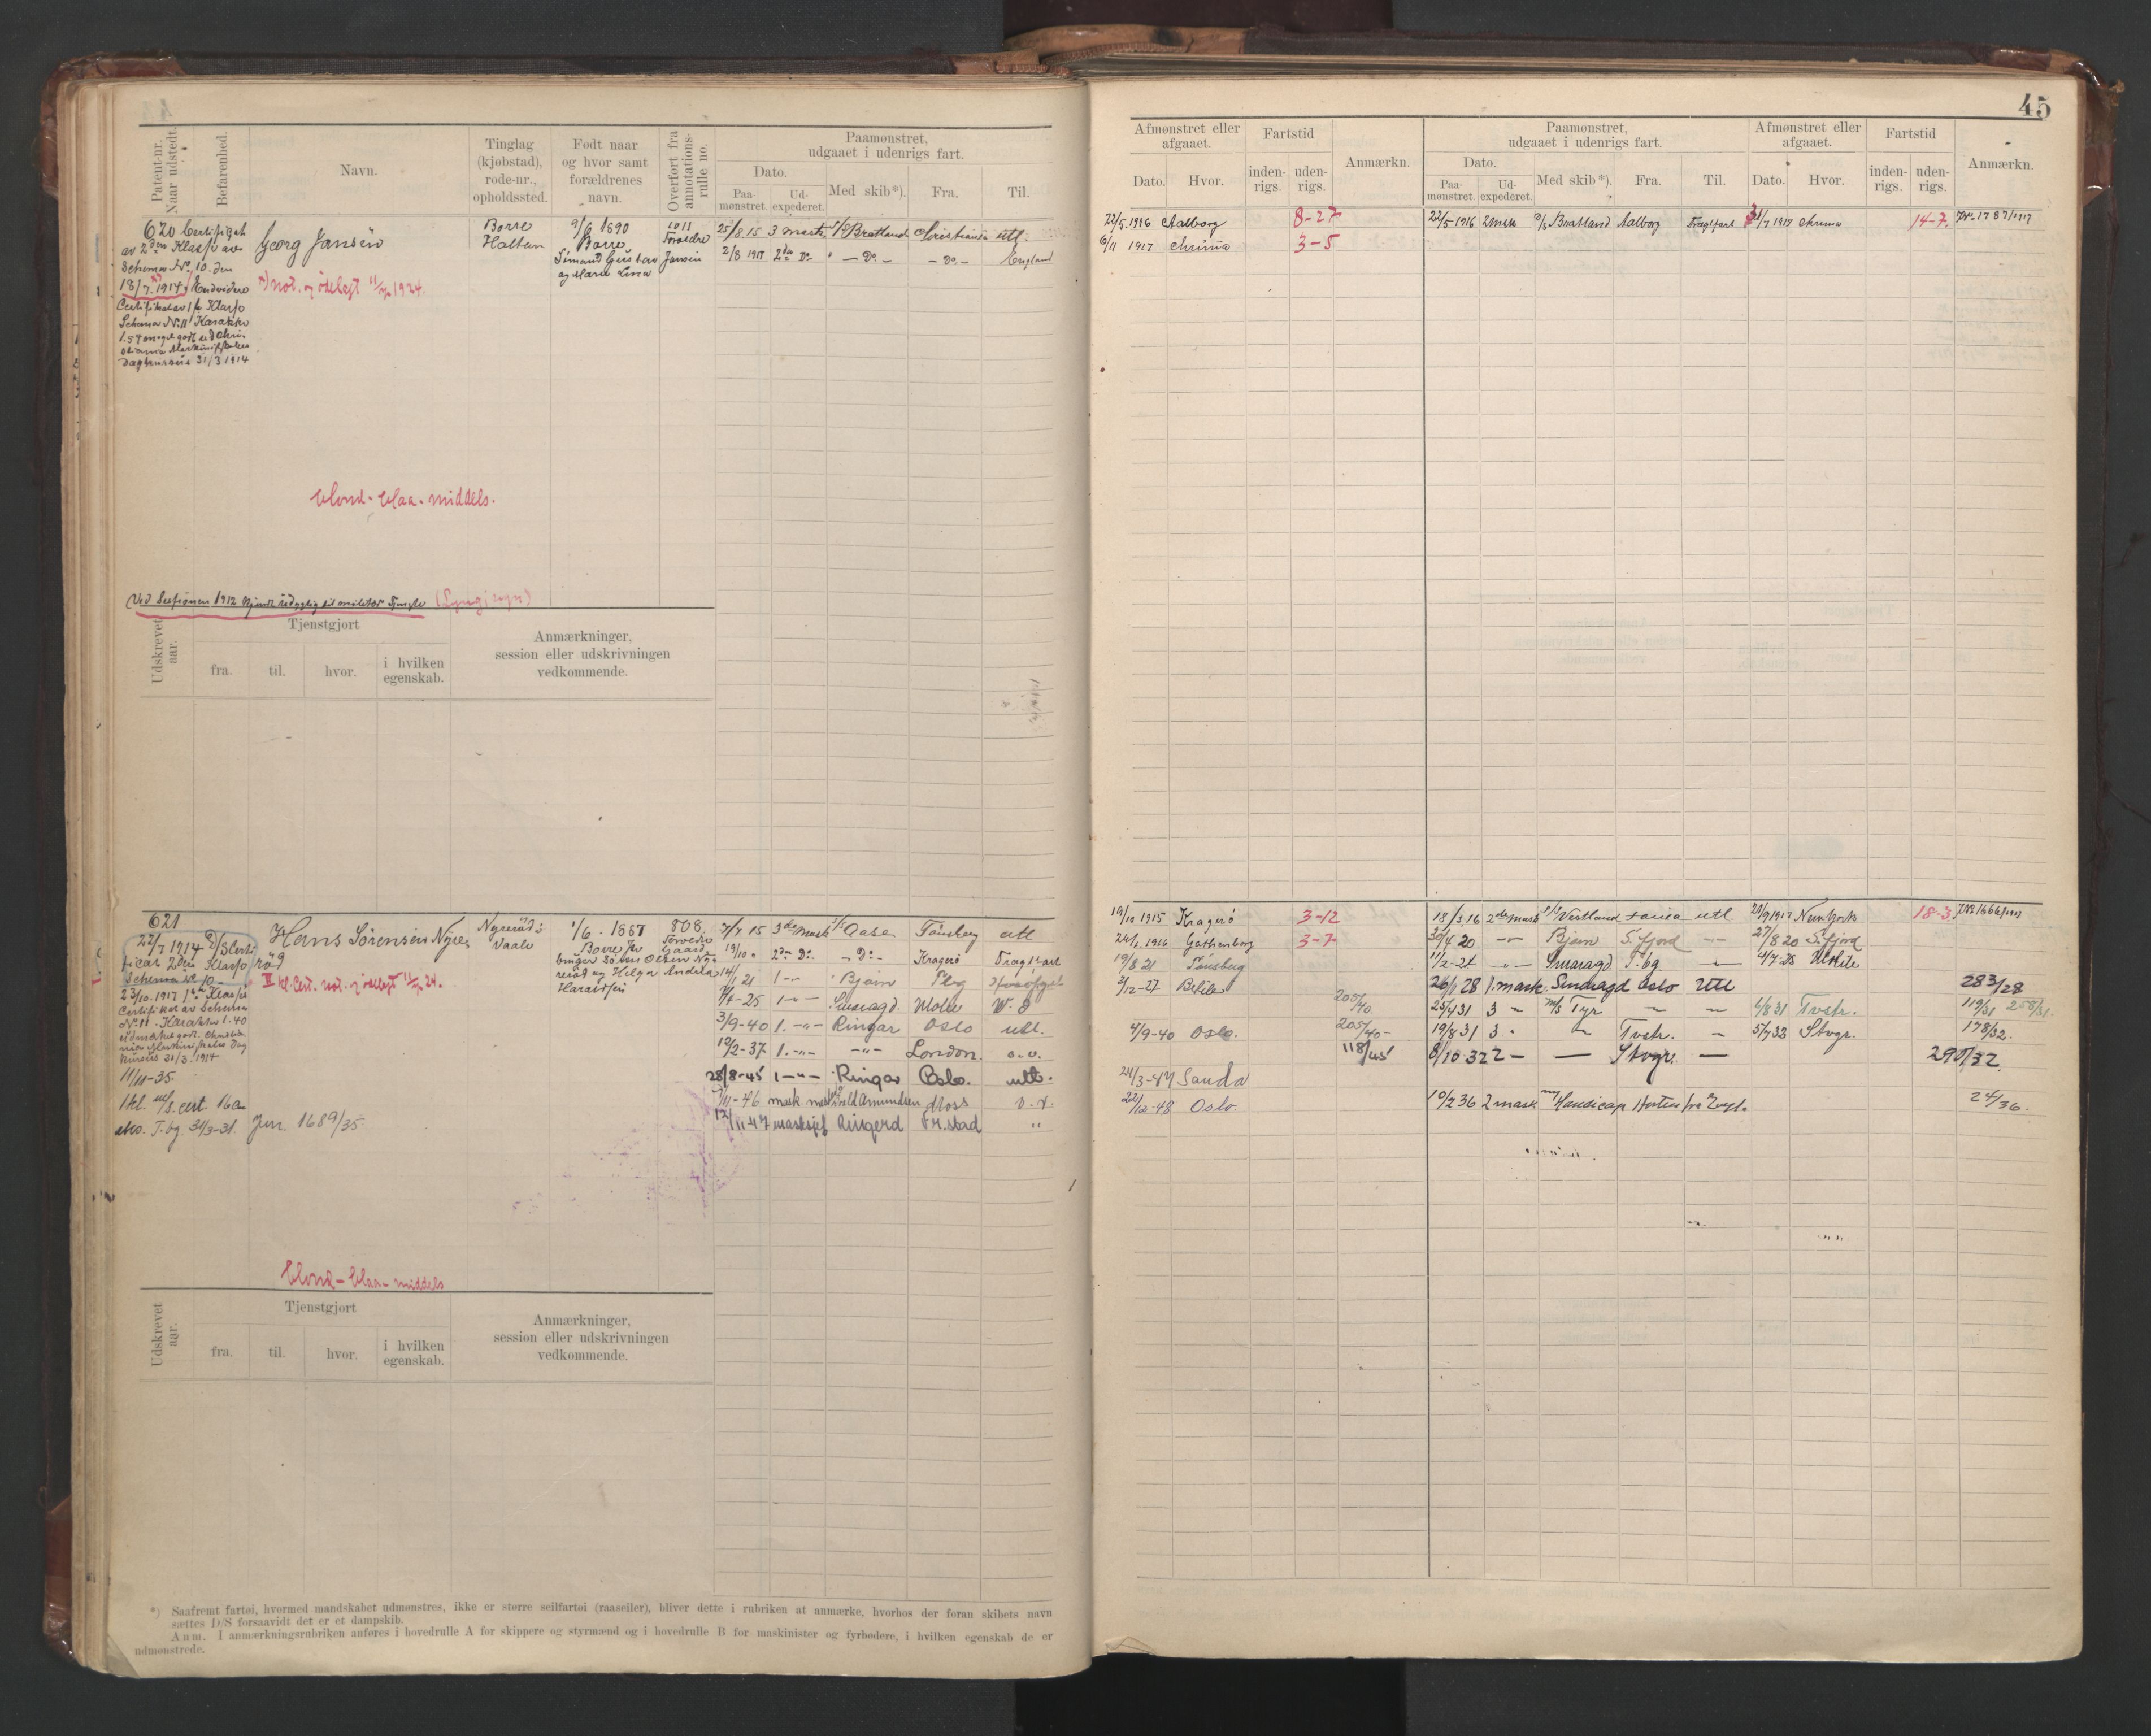 45
Patent-nr. Naar udstedt.
Befarenhed.
Navn.
Tinglag (kjøbstad), rode-nr., opholdssted.
Født naar og hvor samt forældrenes navn.
Overført fra annotations-rulle no.
Paamønstret, udgaaet i udenrigs fart.
Dato.
Paa-mønstret.
Ud-expederet.
Med skib*).
Fra.
Til.
620 Certifiçat
av 2den Klasse av
Schema No 10. den
18/7. 1914. Endvidere
Certifikat av 1ste Klasse
Schema No 11 Karakter
1.54 meget godt ved Chri-
stiania Maskinistskoles
Dagkursus 31/3 1914
Georg Jansen
mod. og ødelagt 11/ 1924.
Borre
Halten
9/6 1890
Borre
Simand Gustav Jansen
og Marie Lovise
1011
Forældre
25/8 15 3 mask D/S Bratland Christiania utl.
2/8 1917 2den Do " — Do — — Do — England
blond - blaa - middels.
Ved Sessionen 1912 kjendt udygtig til militær Tjeneste
Udskrevet aar.
Tjenstgjort
fra.
til.
hvor.
i hvilken egenskab.
Anmærkninger, session eller udskrivningen vedkommende.
621
22/7 1914 D/S Certi
ficat 2den Klasse
Schema No 10
23/10. 1917 1ste Klasses
Certifikat av Schema
No. 11 - Karakter 1.40
udmærket godt. Christia
nia Maskinistskoles Dag
kursus 31/3. 1914
11/11-35.
1 kl. m/s. cert. 16a
T.bg. 31/3-31. Jnr. 1689/35.
Hans Sörensen Nyre,
röd
II kl. Cert. mod. og ødelagt 11/ 24.
Nyreröd i
Vaale
1/6 - 1887
Borre
Gaard
bruger Sören Olsen Ny-
reröd og Helga Andrea
Haraldsen
808.
Forældre
7/7 15 3de Mask D/S Aase Tönsberg utl
19/10 " 2den Do. — Do — Kragerö Fragtfart
14/1 21 1 — " — " Bjørn Tbg
/4-25 1 — " — Smaragd.
3/9-40 1. — " — Ringar Oslo utl.
12/2-37 1. — " — — " — London. o.v.
28/8-45 1 — " — Ringar Oslo. utl.
/11-46 mask. mest Roald Amundsen Moss
12/11-47 masksjef Ringerd Fr.stad "
blond - blaa - middels
Udskrevet aar.
Tjenstgjort
fra.
til.
hvor.
i hvilken egenskab.
Anmærkninger, session eller udskrivningen vedkommende.
*) Saafremt fartøi, hvormed mandskabet udmønstres, ikke er større seilfartøi (raaseiler), bliver dette i rubriken at anmærke, hvorhos der foran skibets navn
sættes D/S forsaavidt det er et dampskib.
Anm. I anmærkningsrubriken anføres i hovedrulle A for skippere og styrmænd og i hovedrulle B for maskinister og fyrbødere, i hvilken egenskab de er
udmønstrede.
Afmønstret eller afgaaet.
Dato.
Hvor.
Fartstid
inden-rigs.
uden-rigs.
Anmærkn.
Paamønstret, udgaaet i udenrigs fart.
Dato.
Paa-mønstret.
Ud-expederet.
Med skib*).
Fra.
Til.
Afmønstret eller afgaaet.
Dato.
Hvor.
Fartstid
inden-rigs.
uden-rigs.
Anmærkn.
22/5. 1916 Aalborg 8-27 22/5 1916 2 msk D/S Bratland Aalborg Fragtfart 31/7 1917 Chrnia 14-7. JNr. 1787/1917
6/11 1917 Chrnia 3-5
19/10 1915 Kragerö 3-12 18/3 16 2de mask D/S Vestland utl 29/9 1917 New York 18-3. JNr 1666/1917
24/1 1916 Gothenborg 3-7 30/4 20 — " — Bjørn S.fjord — " — 27/8 20 S.fjord
19/8 21 Tönsberg 11/2-24 — " — Smaragd. T.bg — " — 4/7-25
3/12-27 26/1 28 1. mask. Smaragd Oslo Utl 283/28
205/40. 25/4 31 3 " m/s Tyr " " 4/8 31 Tvstr. 119/31 258/31.
4/9-40 Oslo. 205/40- 19/8 31 3 " " Tvstr. — 5/7 32 Stvgr. 178/32.
118/45 8/10 32 2 — — Stvgr. — 290/32.
24/3-47 Sauda
22/12-48 Oslo. 10/2 36 2 mask m/ Handicap Horten fra Engl. 24/36.